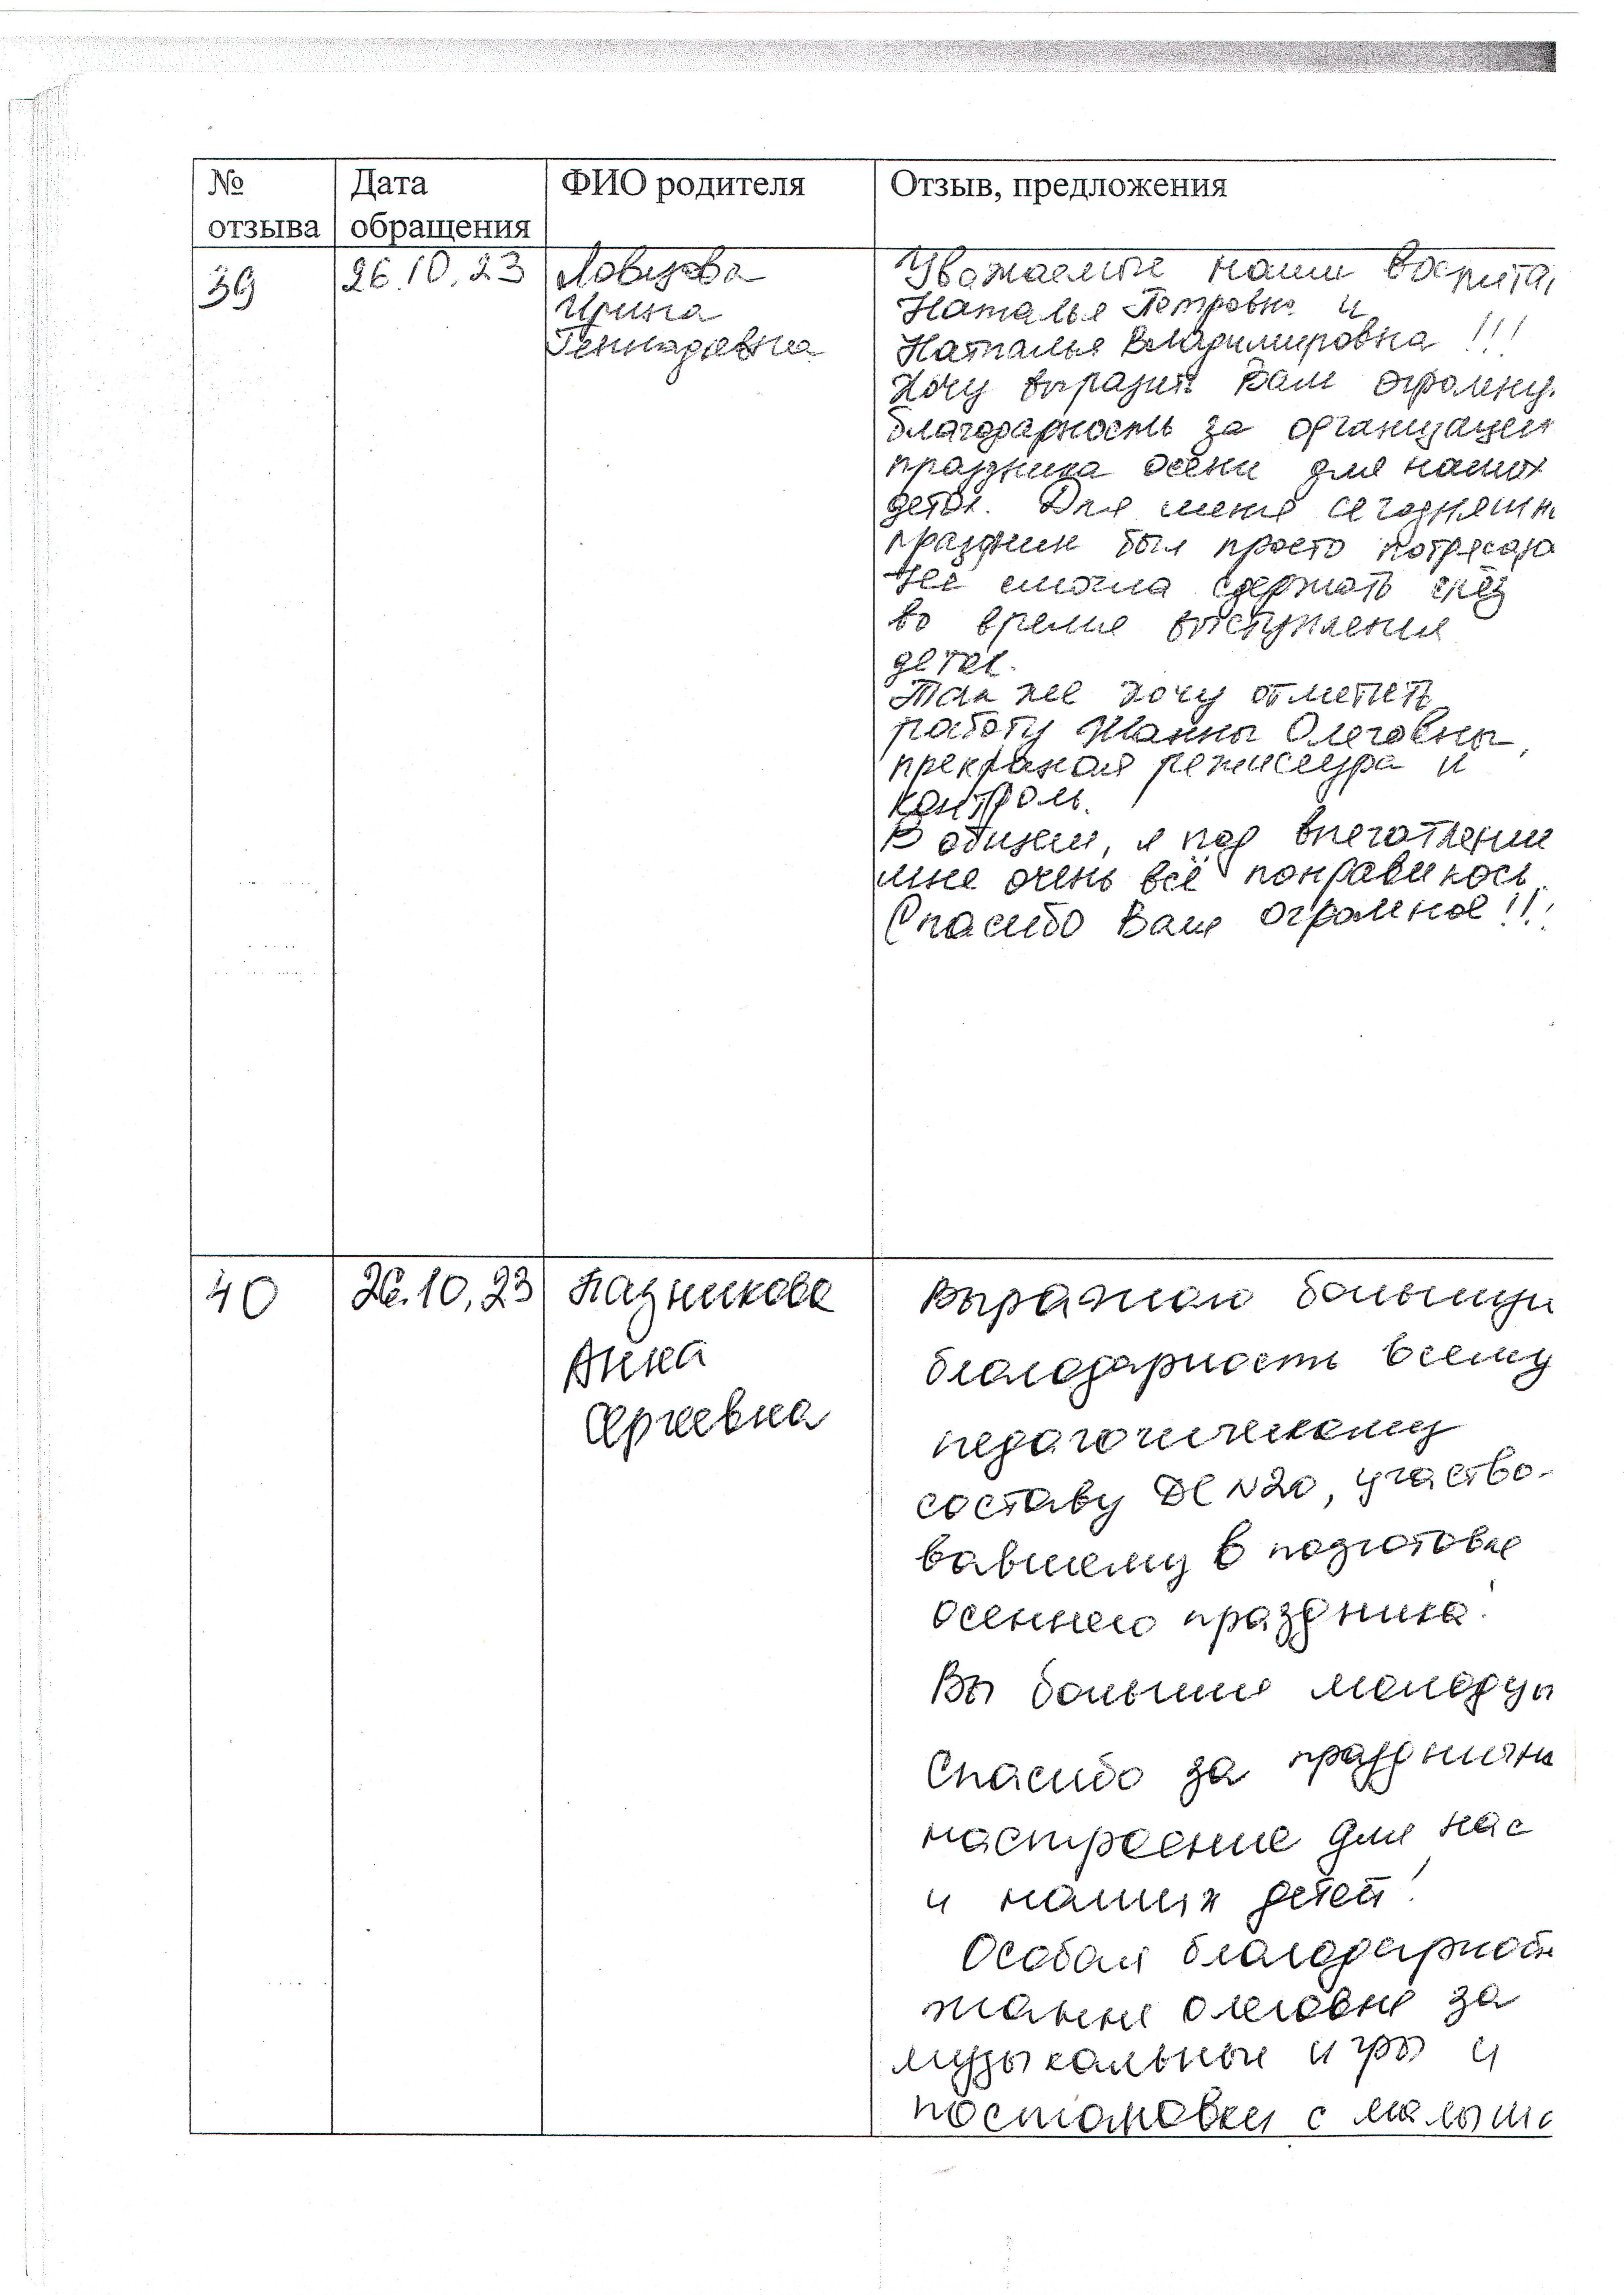 № отзыва
Дата обращения
ФИО родителя
Отзыв, предложения
39
26.10.23
Ловцова
Ирина
Геннадьевна
Уважаемые наши воспита
Наталья Петровна и
Наталья Владимировна !!!
Хочу выразить Вам огромну
благодарность за организацию
праздника осени для наших
деток. Для меня сегодняшн
праздник был просто потрясаю
Не смогла сдержать слёз
во время выступления
деток.
Так же хочу отметить
работу Жанны Олеговны,
прекраная режиссура и
контроль.
В общем, я под впечатление
мне очень всё понравилось.
Спасибо Вам огромное!!!
40
26.10.23
Пазникова
Анна
Сергеевна
Выражаю большую
благодарность всему
педагогическому
составу ДС №20, участво-
вавшему в подготовке
осеннего праздника!
Вы большие молодцы
Спасибо за празднично
настроение для нас
и наших детей!
Особая благодарность
Жанне Олеговне за
музыкальные игры и
постановки с малыша